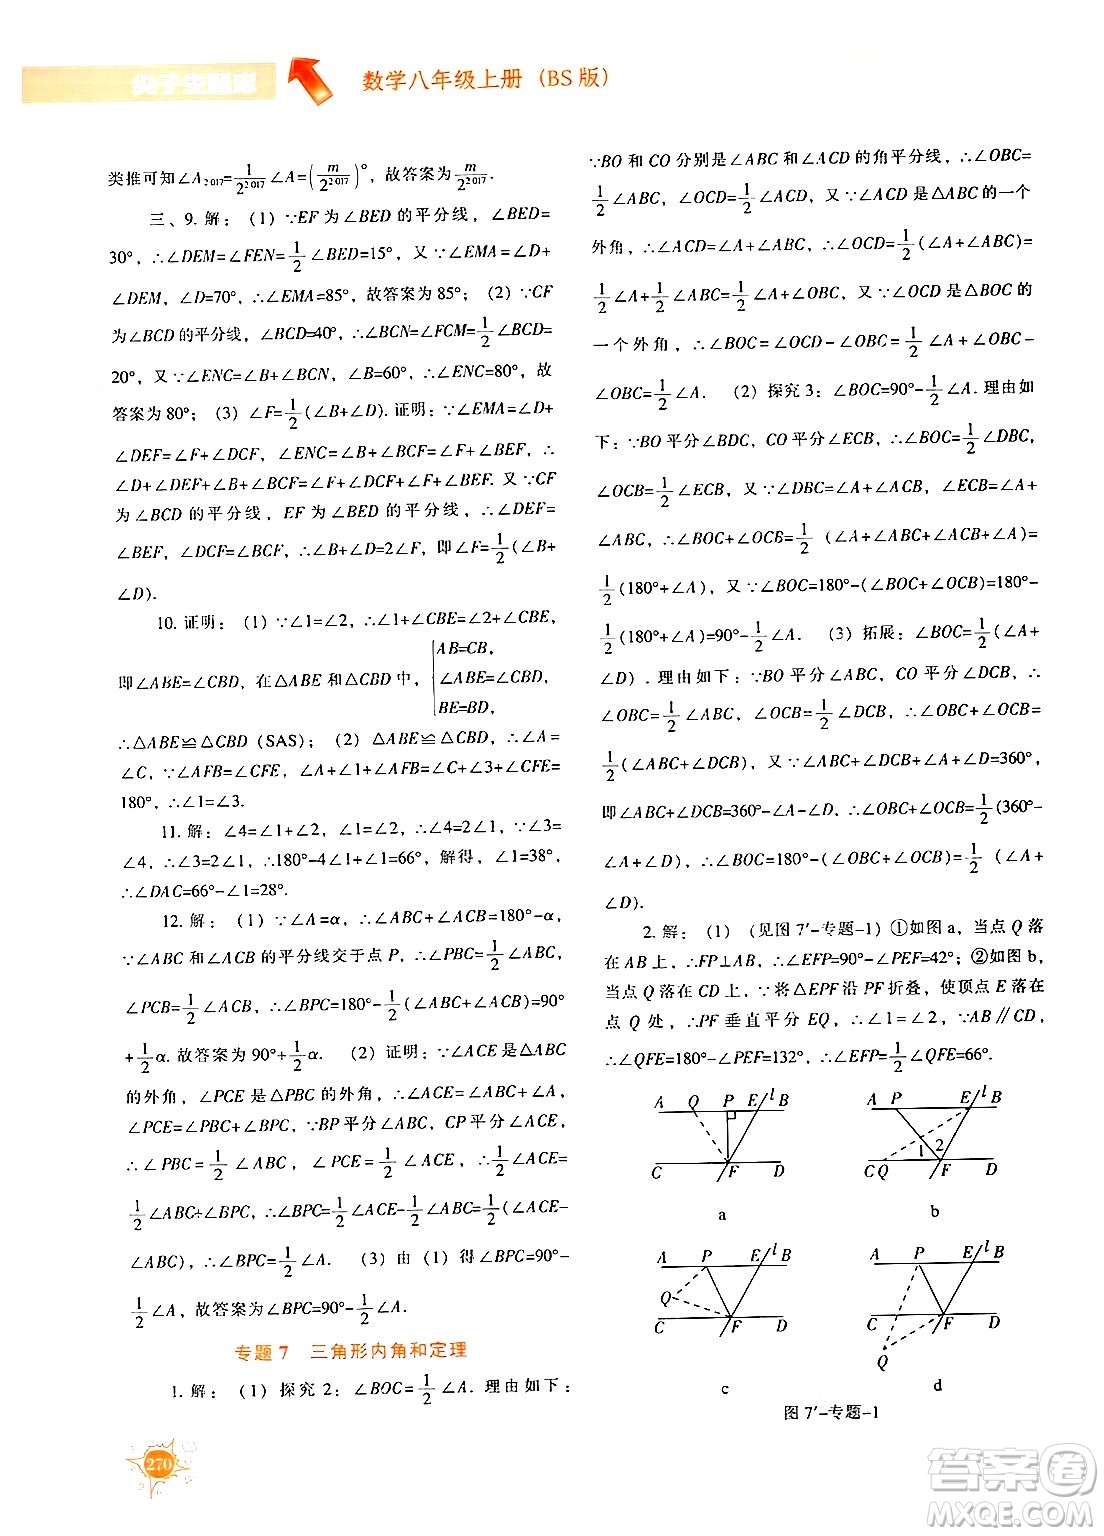 尖子生题库
数学八年级上册（BS版）
类推可知∠A₂₀₁₇=1/2²⁰¹⁷∠A=(m/2²⁰¹⁷)°，故答案为m/2²⁰¹⁷.
三、9. 解：（1）∵EF为∠BED的平分线，∠BED=
30°，∴∠DEM=∠FEN=1/2∠BED=15°，又∵∠EMA=∠D+
∠DEM，∠D=70°，∴∠EMA=85°，故答案为85°；（2）∵CF
为∠BCD的平分线，∠BCD=40°，∴∠BCN=∠FCM=1/2∠BCD=
20°，又∵∠ENC=∠B+∠BCN，∠B=60°，∴∠ENC=80°，故
答案为80°；（3）∠F=1/2(∠B+∠D).证明：∵∠EMA=∠D+
∠DEF=∠F+∠DCF，∠ENC=∠B+∠BCF=∠F+∠BEF，∴
∠D+∠DEF+∠B+∠BCF=∠F+∠DCF+∠F+∠BEF. 又∵CF
为∠BCD的平分线，EF为∠BED的平分线，∴∠DEF=
∠BEF，∠DCF=∠BCF，∴∠B+∠D=2∠F，即∠F=1/2(∠B+
∠D).
10. 证明：（1）∵∠1=∠2，∴∠1+∠CBE=∠2+∠CBE，
即∠ABE=∠CBD，在△ABE和△CBD中，{AB=CB，
∠ABE=∠CBD，
BE=BD，
∴△ABE≌△CBD（SAS）；（2）△ABE≌△CBD，∴∠A=
∠C，∵∠AFB=∠CFE，∠A+∠1+∠AFB=∠C+∠3+∠CFE=
180°，∴∠1=∠3.
11. 解：∠4=∠1+∠2，∠1=∠2，∴∠4=2∠1，∵∠3=
∠4，∴∠3=2∠1，∴180°-4∠1+∠1=66°，解得，∠1=38°，
∴∠DAC=66°-∠1=28°.
12. 解：（1）∵∠A=α，∴∠ABC+∠ACB=180°-α，
∠ABC和∠ACB的平分线交于点P，∴∠PBC=1/2∠ABC，
∠PCB=1/2∠ACB，∴∠BPC=180°-1/2(∠ABC+∠ACB)=90°
+1/2α. 故答案为90°+1/2α. （2）证明：∵∠ACE是△ABC
的外角，∠PCE是△PBC的外角，∴∠ACE=∠ABC+∠A，
∠PCE=∠PBC+∠BPC，∵BP平分∠ABC，CP平分∠ACE，
∴∠PBC=1/2∠ABC，∠PCE=1/2∠ACE，∴1/2∠ACE=
1/2∠ABC+∠BPC，∴∠BPC=1/2∠ACE-1/2∠ABC=1/2(∠ACE-
∠ABC)，∴∠BPC=1/2∠A. （3）由（1）得∠BPC=90°-
1/2∠A，故答案为∠BPC=90°-1/2∠A.
专题7 三角形内角和定理
1. 解：（1）探究2：∠BOC=1/2∠A. 理由如下：
∵BO和CO分别是∠ABC和∠ACD的角平分线，∴∠OBC=
1/2∠ABC，∠OCD=1/2∠ACD，又∵∠ACD是△ABC的一个
外角，∴∠ACD=∠A+∠ABC，∴∠OCD=1/2(∠A+∠ABC)=
1/2∠A+1/2∠ABC=1/2∠A+∠OBC，又∵∠OCD是△BOC的
一个外角，∴∠BOC=∠OCD-∠OBC=1/2∠A+∠OBC-
∠OBC=1/2∠A. （2）探究3：∠BOC=90°-1/2∠A. 理由如
下：∵BO平分∠BDC，CO平分∠ECB，∴∠BOC=1/2∠DBC，
∠OCB=1/2∠ECB，又∵∠DBC=∠A+∠ACB，∠ECB=∠A+
∠ABC，∴∠BOC+∠OCB=1/2（∠A+∠ABC+∠ACB+∠A)=
1/2(180°+∠A)，又∵∠BOC=180°-(∠BOC+∠OCB)=180°-
1/2(180°+∠A)=90°-1/2∠A. （3）拓展：∠BOC=1/2(∠A+
∠D). 理由如下：∵BO平分∠ABC，CO平分∠DCB，∴
∠OBC=1/2∠ABC，∠OCB=1/2∠DCB，∴∠OBC+∠OCB=
1/2(∠ABC+∠DCB)，又∵∠ABC+∠DCB+∠A+∠D=360°，
即∠ABC+∠DCB=360°-∠A-∠D，∴∠OBC+∠OCB=1/2(360°-
∠A+∠D)，∴∠BOC=180°-(∠OBC+∠OCB)=1/2（∠A+
∠D).
2. 解：（1）（见图7′-专题-1）①如图a，当点Q落
在AB上，∴FP⊥AB，∴∠EFP=90°-∠PEF=42°；②如图b，
当点Q落在CD上，∵将△EPF沿PF折叠，使顶点E落在
点Q处，∴PF垂直平分EQ，∴∠1=∠2，∵AB∥CD，
∴∠QFE=180°-∠PEF=132°，∴∠EFP=1/2∠QFE=66°.
A Q P E l B
C F D
a
A P E l B
1 2
C Q F D
b
A P E l B
Q
C F D
c
A P E l B
C F D
Q
d
图7′-专题-1
270
答案圈
MXQE.COM